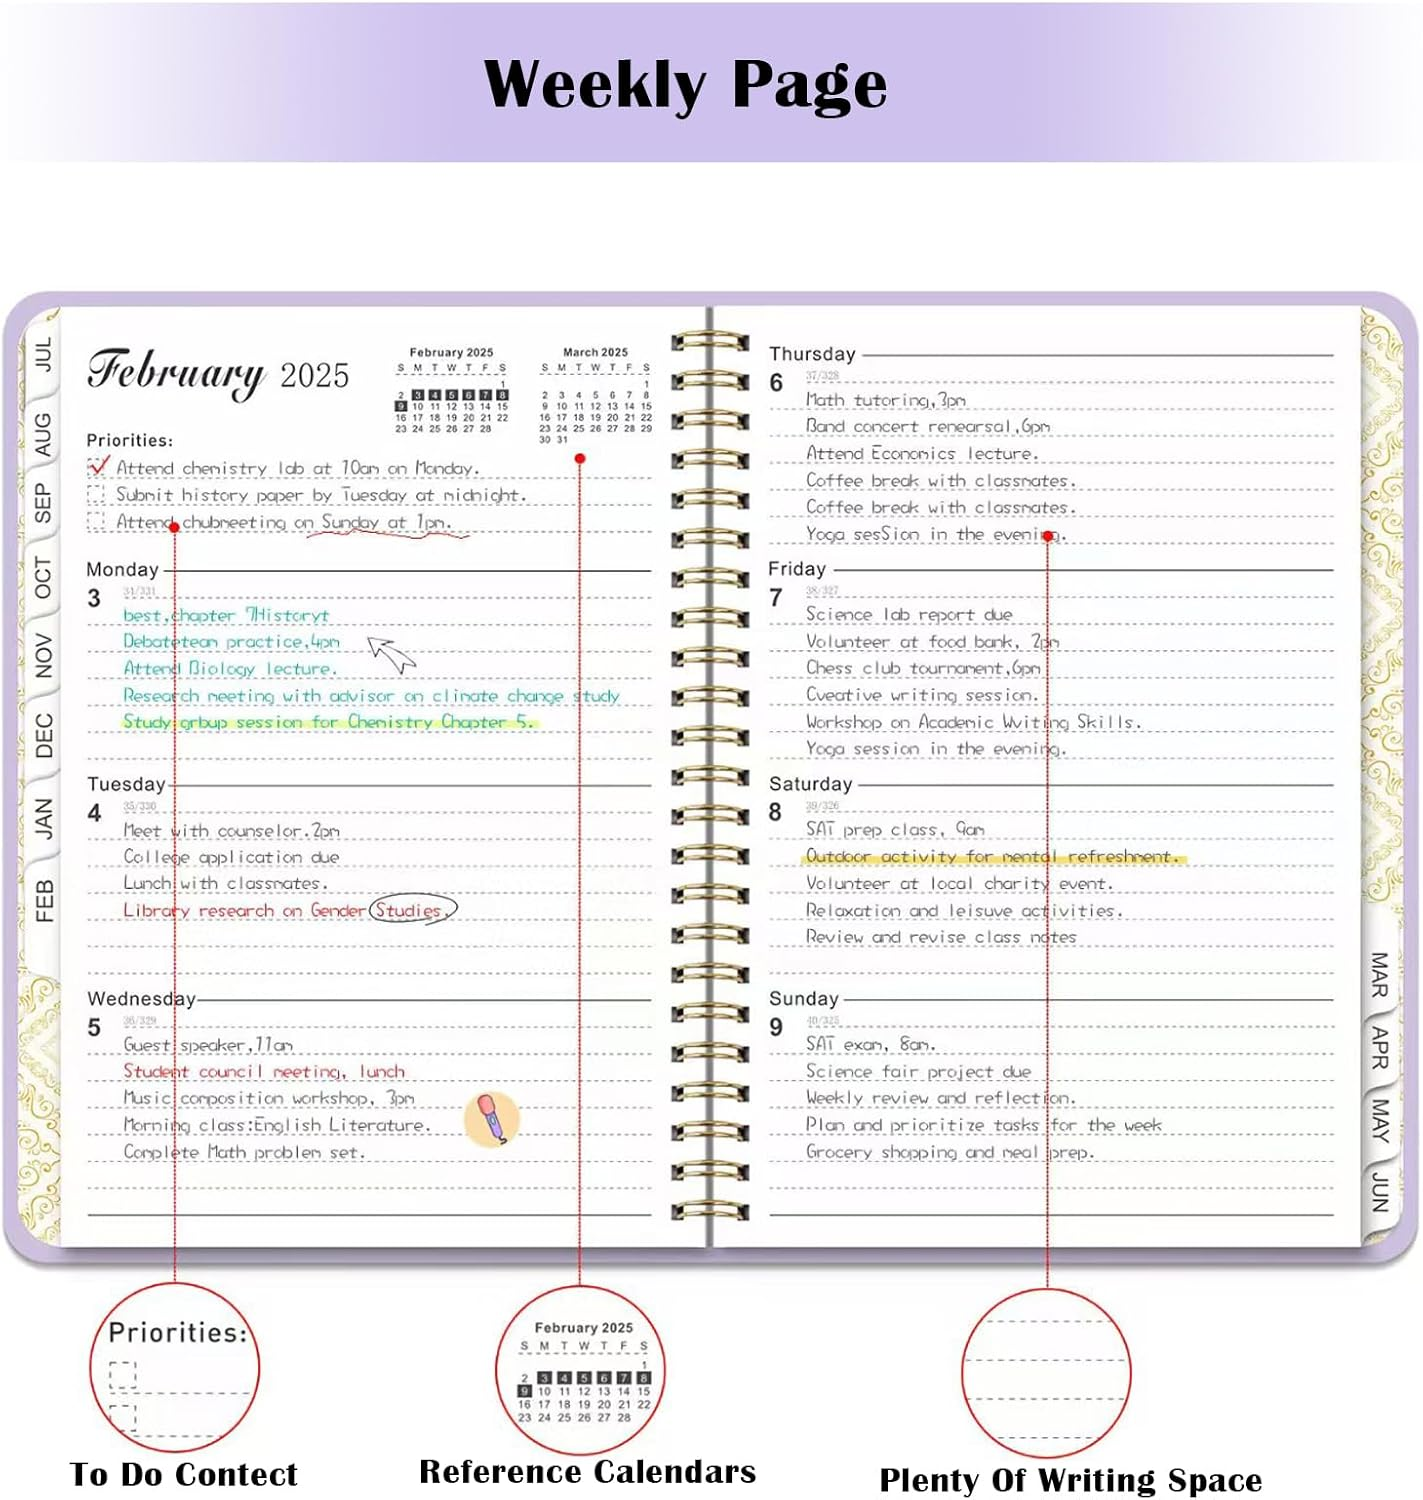 Weekly Page
February 2025
February 2025
S M T W T F S
1
2 3 4 5 6 7 8
9 10 11 12 13 14 15
16 17 18 19 20 21 22
23 24 25 26 27 28
March 2025
S M T W T F S
1
2 3 4 5 6 7 8
9 10 11 12 13 14 15
16 17 18 19 20 21 22
23 24 25 26 27 28 29
30 31
Priorities:
Attend chemistry lab at 10am on Monday.
Submit history paper by Tuesday at midnight.
Attend chubmeeting on Sunday at 1pm.
Monday
3
31/331
best,chapter 7Historyt
Debateteam practice,4pm
Attend Biology lecture.
Research meeting with advisor on climate change study
Study grbup session for Chemistry Chapter 5.
Tuesday
4
35/330
Meet with counselor.2pm
College application due
Lunch with classmates.
Library research on Gender Studies.
Wednesday
5
36/329
Guest speaker,11am
Student council meeting, lunch
Music composition workshop, 3pm
Morning class:English Literature.
Complete Math problem set.
Thursday
6
37/328
Math tutoring,3pm
Band concert renearsal,6pm
Attend Economics lecture.
Coffee break with classmates.
Coffee break with classmates.
Yoga sesSion in the evening.
Friday
7
38/327
Science lab report due
Volunteer at food bank, 2pm
Chess club tournament,6pm
Cveative writing session.
Workshop on Academic Wviting Skills.
Yoga session in the evening.
Saturday
8
39/326
SAT prep class, 9am
Outdoor activity for mental refreshment.
Volunteer at local charity event.
Relaxation and leisuve activities.
Review and revise class notes
Sunday
9
40/325
SAT exam, 8am.
Science fair project due
Weekly review and reflection.
Plan and prioritize tasks for the week
Grocery shopping and meal prep.
JUL
AUG
SEP
OCT
NOV
DEC
JAN
FEB
MAR
APR
MAY
JUN
Priorities:
To Do Contect
February 2025
S M T W T F S
1
2 3 4 5 6 7 8
9 10 11 12 13 14 15
16 17 18 19 20 21 22
23 24 25 26 27 28
Reference Calendars
Plenty Of Writing Space